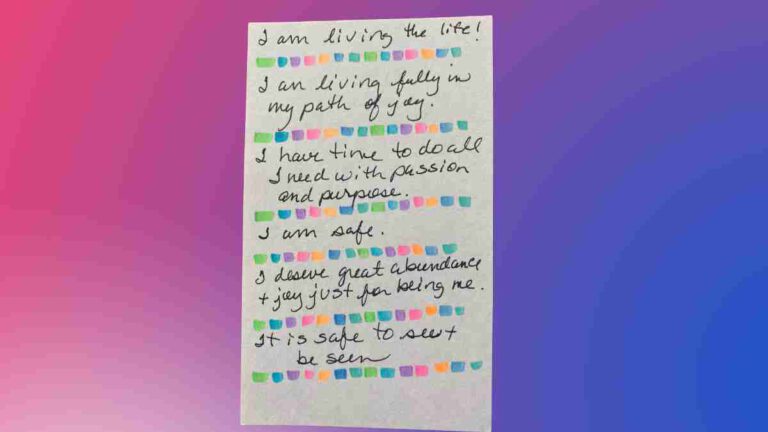 I am living the life!
I am living fully in
my path of joy.
I have time to do all
I need with passion
and purpose.
I am safe.
I deserve great abundance
+ joy just for being me.
It is safe to see +
be seen